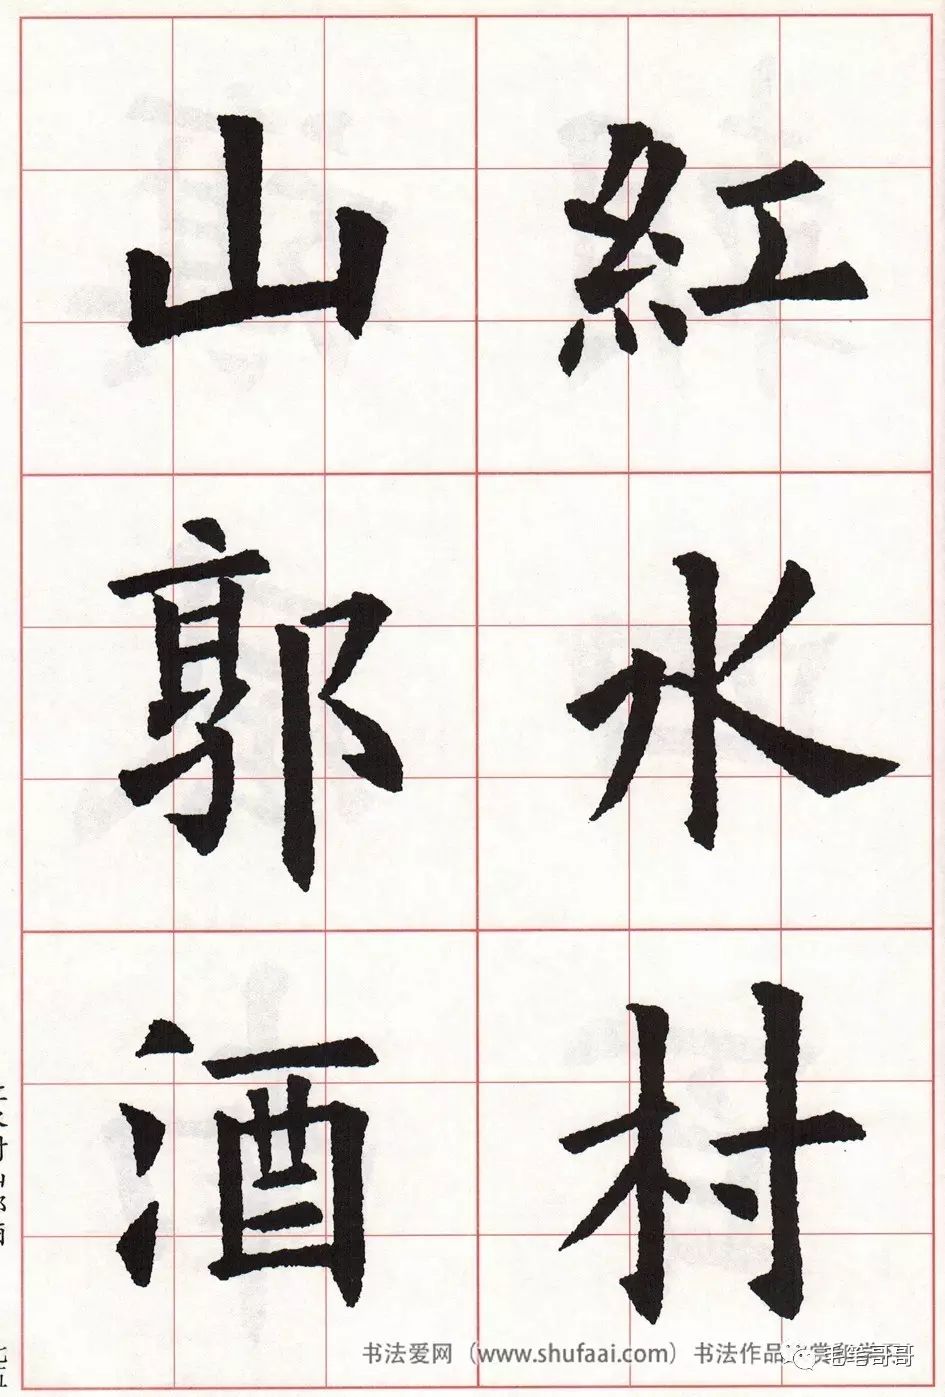 紅水村
山郭酒
书法爱网（www.shufaai.com）书法作品
毛笔哥哥